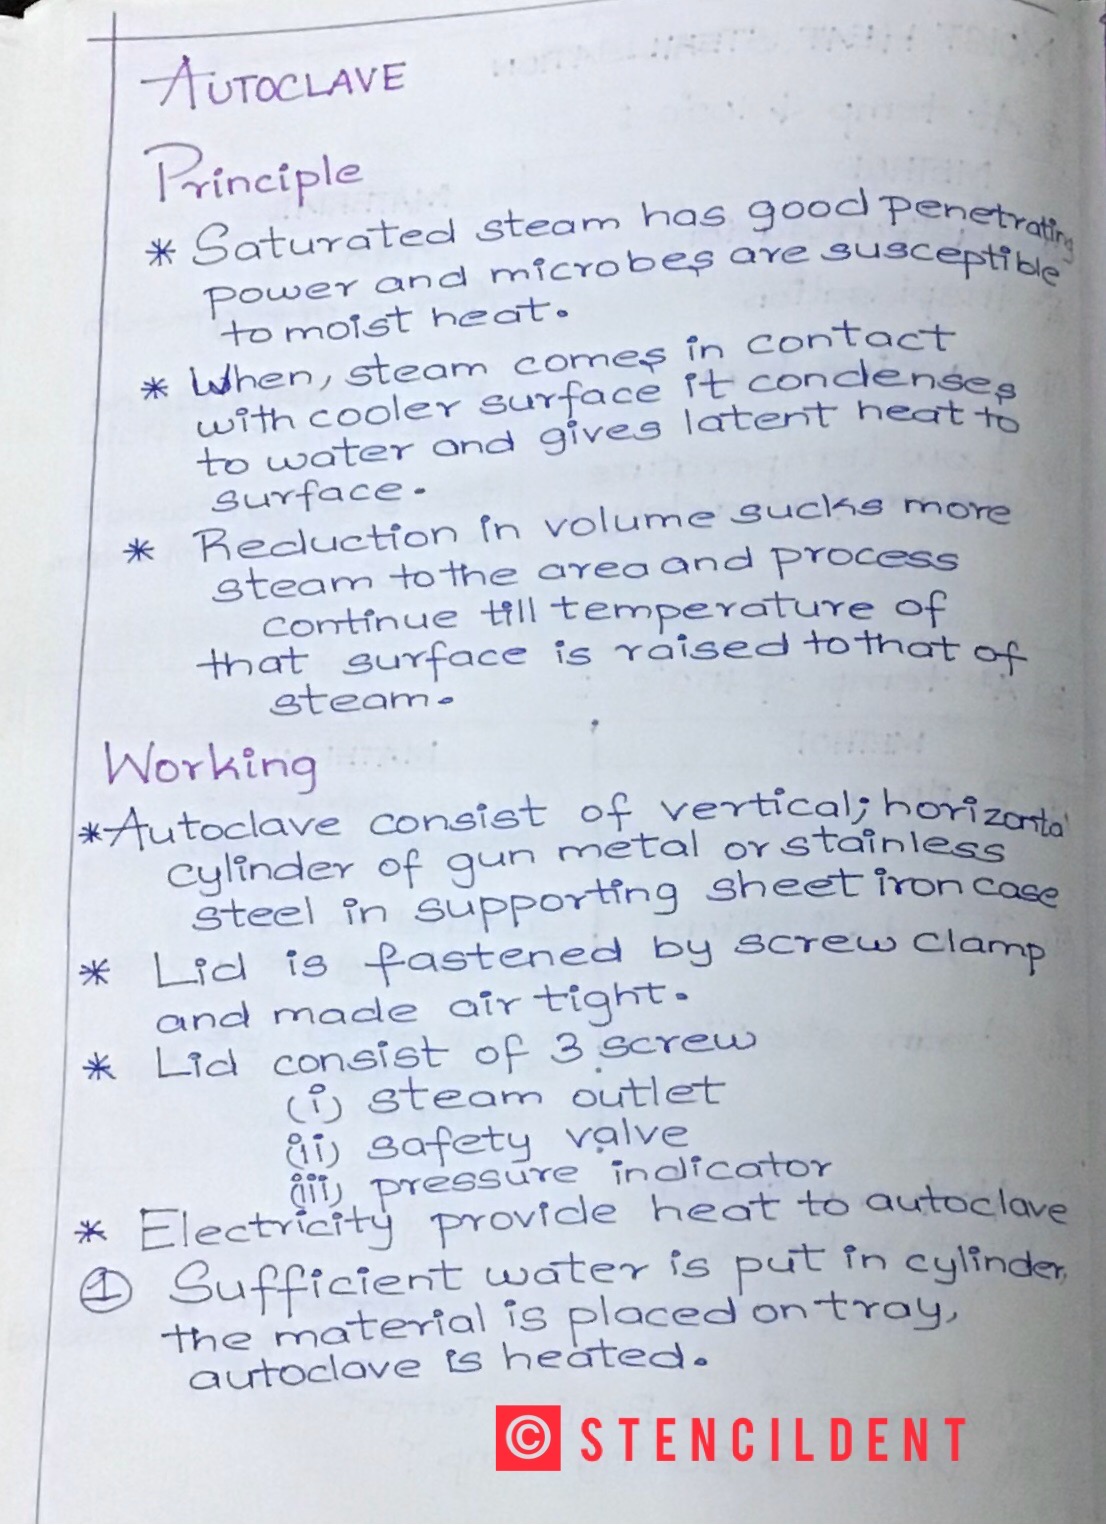 AUTOCLAVE
Principle
* Saturated steam has good penetrating
power and microbes are susceptible
to moist heat.
* When, steam comes in contact
with cooler surface it condenses
to water and gives latent heat to
surface.
* Reduction in volume sucks more
steam to the area and process
continue till temperature of
that surface is raised to that of
steam.
Working
* Autoclave consist of vertical; horizontal
cylinder of gun metal or stainless
steel in supporting sheet iron case
* Lid is fastened by screw clamp
and made air tight.
* Lid consist of 3 screw
(i) steam outlet
(ii) safety valve
(iii) pressure indicator
* Electricity provide heat to autoclave
① Sufficient water is put in cylinder,
the material is placed on tray,
autoclave is heated.
© STENCILDENT